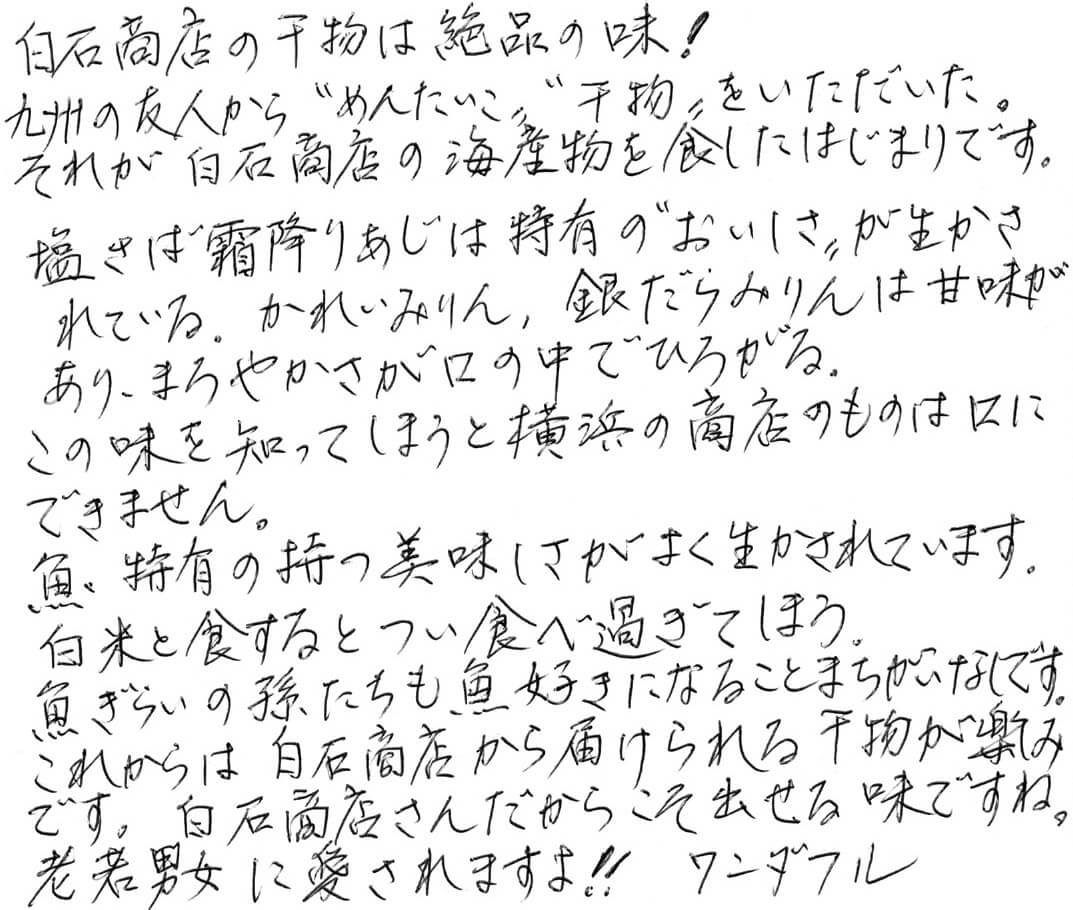 白石商店の干物は絶品の味!
九州の友人から〝めんたいこ〟〝干物〟をいただいた。
それが白石商店の海産物を食したはじまりです。
塩さば霜降りあじは特有の〝おいしさ〟が生かさ
れている。かれいみりん,銀だらみりんは甘味が
あり、まろやかさが口の中でひろがる。
この味を知ってしまうと横浜の商店のものは口に
できません。
魚、特有の持つ美味しさがよく生かされています。
白米と食するとつい食べ過ぎてしまう。
魚ぎらいの孫たちも魚好きになることまちがいなしです。
これからは白石商店から届けられる干物が楽しみ
です。白石商店さんだからこそ出せる味ですね。
老若男女に愛されますよ!! ワンダフル